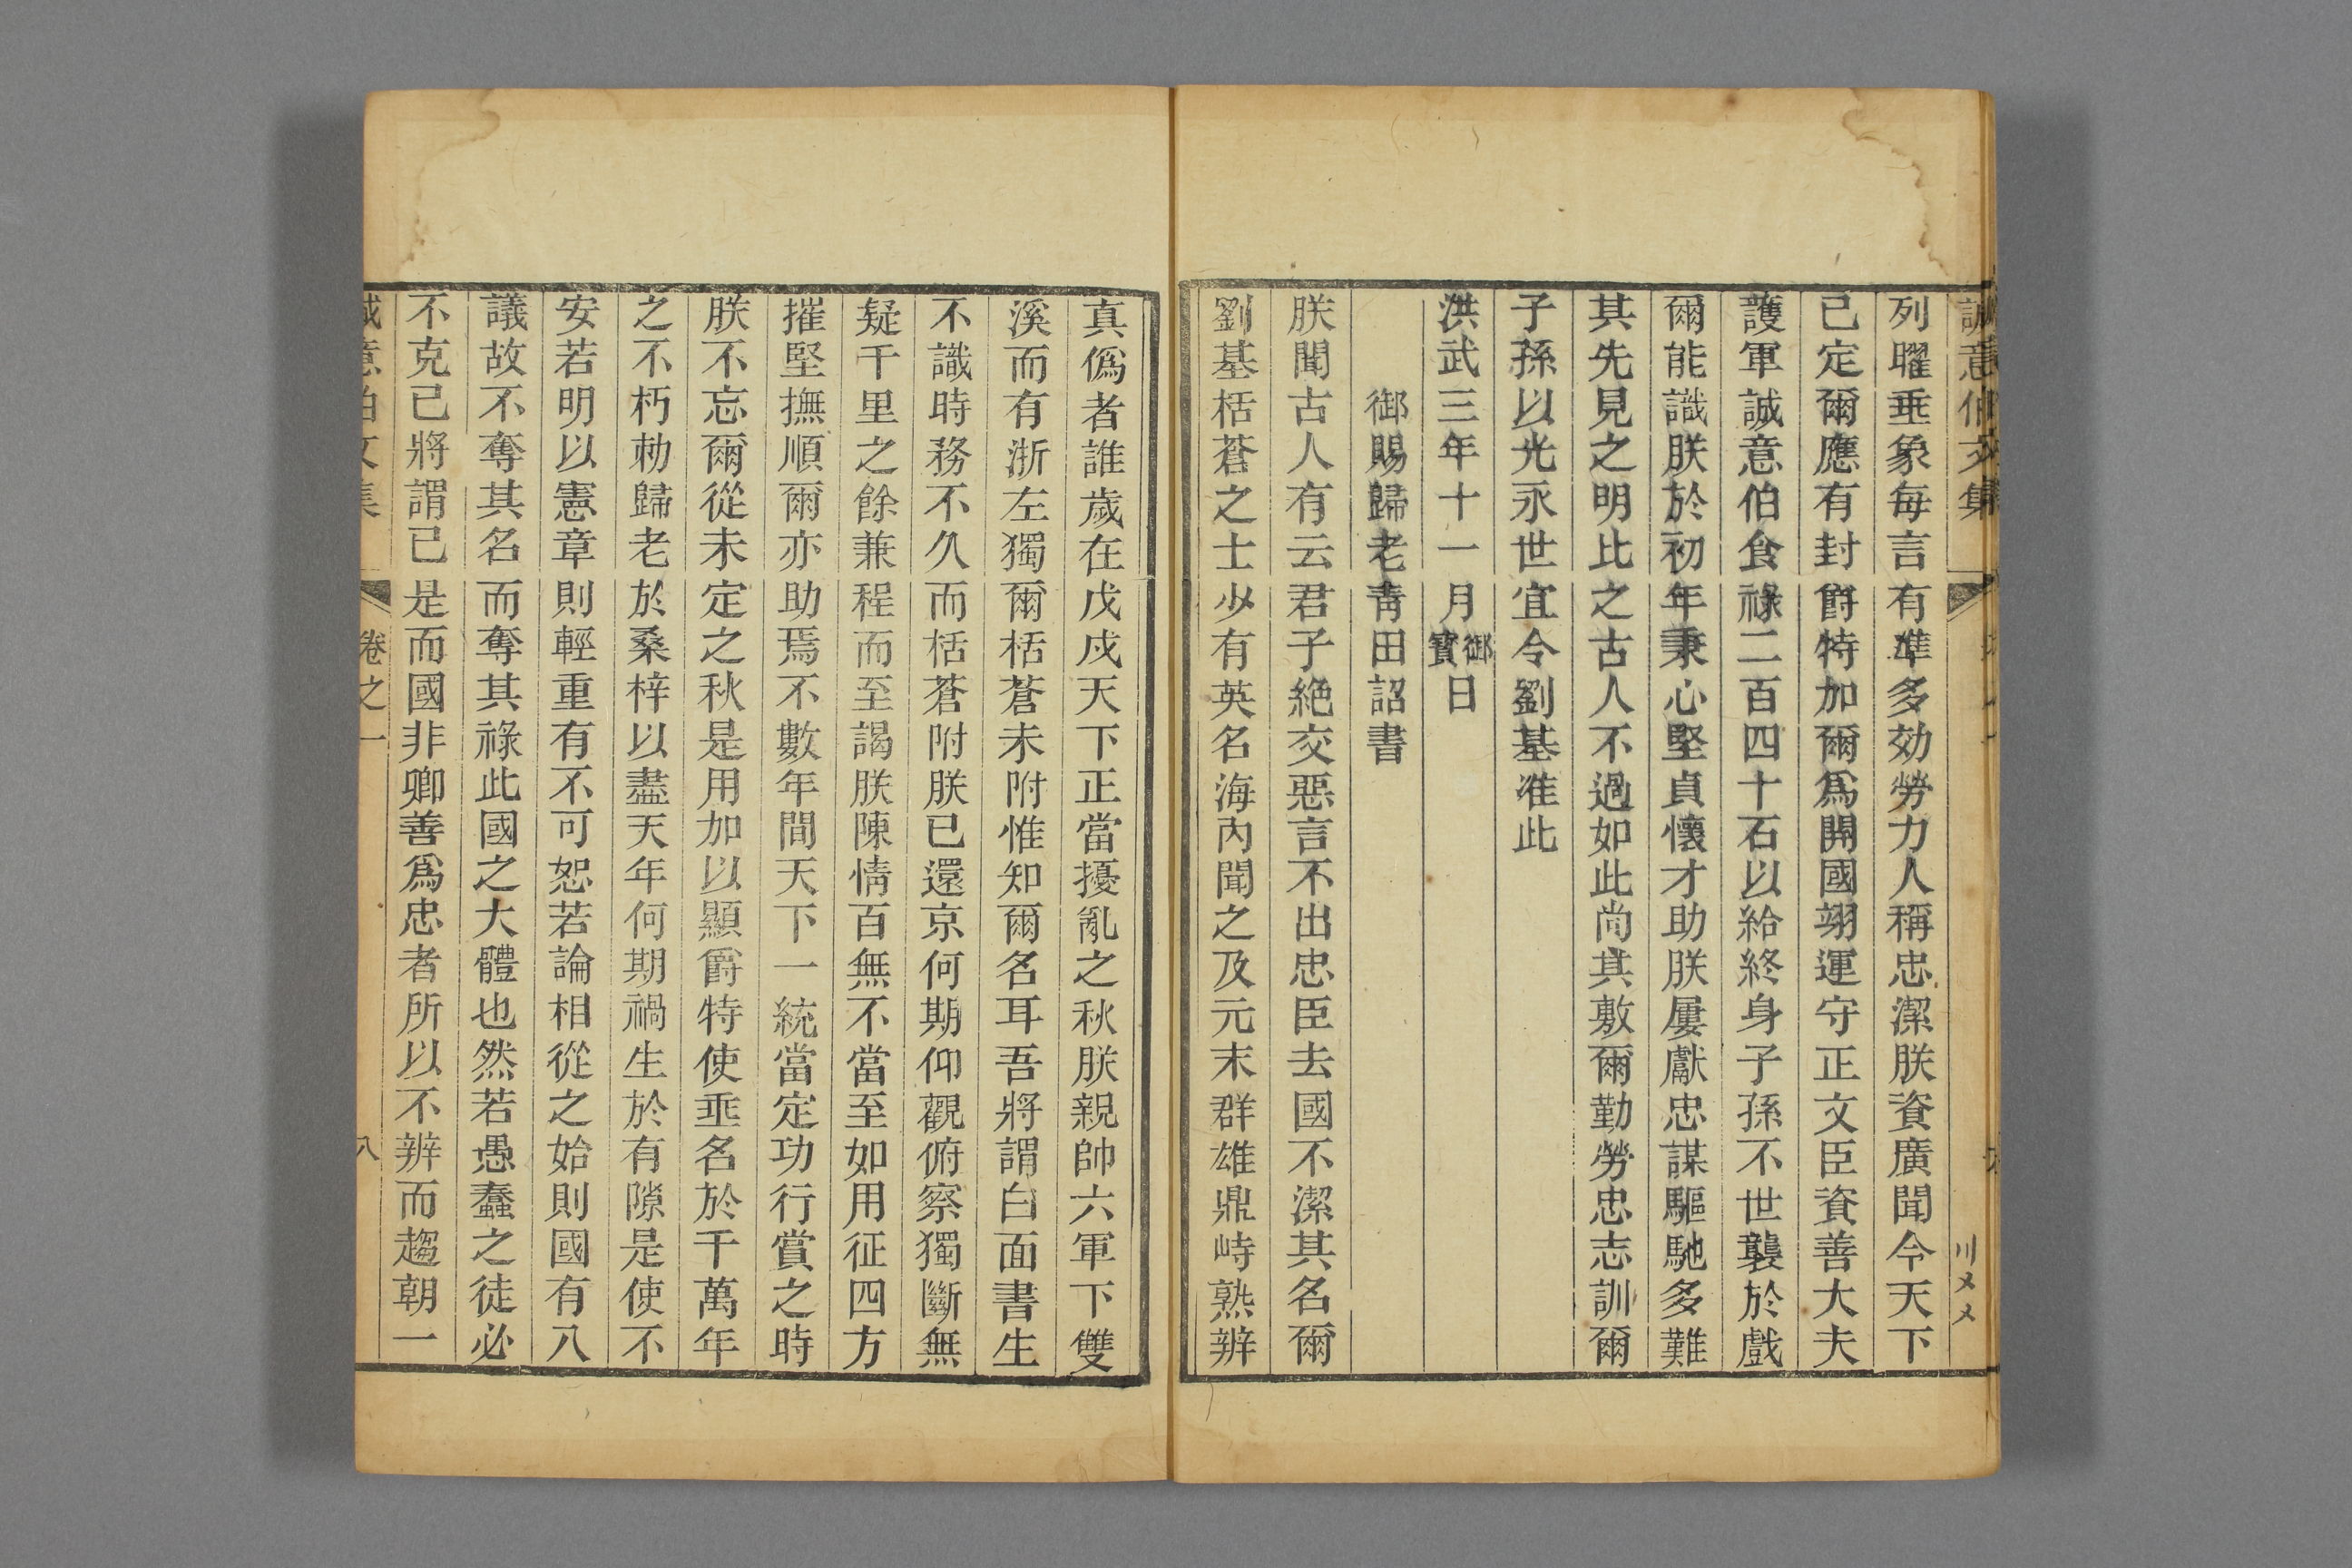 誠意伯文集
列曜垂象每言有準多効勞力人稱忠潔朕資廣聞今天下
已定爾應有封爵特加爾爲開國翊運守正文臣資善大夫
護軍誠意伯食祿二百四十石以給終身子孫不世襲於戲
爾能識朕於初年秉心堅貞懷才助朕屢獻忠謀驅馳多難
其先見之明比之古人不過如此尚其敷爾勤勞忠志訓爾
子孫以光永世宜令劉基准此
洪武三年十一月御寶日
御賜歸老青田詔書
朕聞古人有云君子絶交惡言不出忠臣去國不潔其名爾
劉基栝蒼之士少有英名海內聞之及元末群雄鼎峙熟辨
真僞者誰歲在戊戌天下正當擾亂之秋朕親帥六軍下雙
溪而有浙左獨爾栝蒼未附惟知爾名耳吾將謂白面書生
不識時務不久而栝蒼附朕已還京何期仰觀俯察獨斷無
疑千里之餘兼程而至謁朕陳情百無不當至如用征四方
摧堅撫順爾亦助焉不數年間天下一統當定功行賞之時
朕不忘爾從未定之秋是用加以顯爵特使垂名於千萬年
之不朽勑歸老於桑梓以盡天年何期禍生於有隙是使不
安若明以憲章則輕重有不可恕若論相從之始則國有八
議故不奪其名而奪其祿此國之大體也然若愚蠢之徒必
不克已將謂已是而國非卿善爲忠者所以不辨而趨朝一
誠意伯文集 卷之一 八